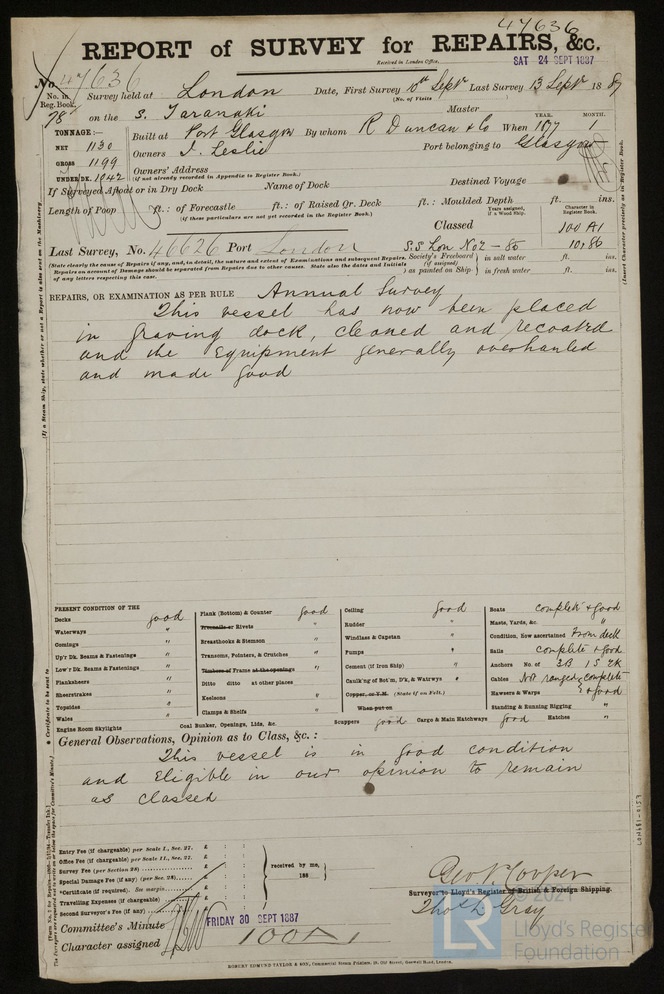 47636
REPORT of SURVEY for REPAIRS, &c.
Received in London Office. SAT 24 SEPT 1887
No. 47636
No. in Reg. Book. 78
Survey held at London Date, First Survey 10th Sept Last Survey 13 Sept 1887
(No. of Visits)
on the S. Taranaki Master
TONNAGE:—
NET 1130
GROSS 1199
UNDER DK. 1042
Built at Port Glasgow By whom R Duncan & Co When YEAR. 1877 MONTH. 1
Owners J. Leslie Port belonging to Glasgow
Owners' Address
(if not already recorded in Appendix to Register Book.)
If Surveyed Afloat or in Dry Dock Name of Dock Destined Voyage
Length of Poop ft.: of Forecastle ft.: of Raised Qr. Deck ft.: Moulded Depth ft. ins.
(if these particulars are not yet recorded in the Register Book.)
Years assigned, if a Wood Ship. Character in Register Book.
Classed 100 A1
Last Survey, No. 46626 Port London S.S Lon No 2 – 85 10,86
(State clearly the cause of Repairs if any, and, in detail, the nature and extent of Examinations and subsequent Repairs. Repairs on account of Damage should be separated from Repairs due to other causes. State also the dates and Initials of any letters respecting this case.
Society's Freeboard (if assigned) as painted on Ship in salt water ft. ins.
in fresh water ft. ins.
REPAIRS, OR EXAMINATION AS PER RULE Annual Survey
This vessel has now been placed
in graving dock, cleaned and recoated
and the Equipment generally overhauled
and made good
PRESENT CONDITION OF THE
Decks good
Waterways "
Comings "
Up'r Dk. Beams & Fastenings "
Low'r Dk. Beams & Fastenings "
Planksheers "
Sheerstrakes "
Topsides "
Wales "
Engine Room Skylights
Plank (Bottom) & Counter good
Treenails or Rivets "
Breasthooks & Stemson "
Transoms, Pointers, & Crutches "
Timbers or Frame at the openings "
Ditto ditto at other places "
Keelsons "
Clamps & Shelfs "
Coal Bunker, Openings, Lids, &c.
Ceiling good
Rudder "
Windlass & Capstan "
Pumps "
Cement (if Iron Ship) "
Caulk'ng of Bot'm, D'k, & Watrwys "
Copper, or Y.M. (State if on Felt.)
When put on
Scuppers good Cargo & Main Hatchways good Hatches "
Boats complete & good
Masts, Yards, &c. "
Condition, How ascertained From deck
Sails complete & good
Anchors No. of 3B 1S 2K
Cables Not ranged complete
Hawsers & Warps & good
Standing & Running Rigging "
General Observations, Opinion as to Class, &c. :
This vessel is in good condition
and Eligible in our opinion to remain
as classed
Entry Fee (if chargeable) per Scale I., Sec. 27. £ : :
Office Fee (if chargeable) per Scale II., Sec. 27. £ : :
Survey Fee (per Section 28) £ : :
Special Damage Fee (if any) (per Sec. 28) £ : :
*Certificate (if required). See margin. £ : :
Travelling Expenses (if chargeable) £ : :
Second Surveyor's Fee (if any) £ : :
received by me,
188
Geo N Cooper
Surveyor to Lloyd's Register of British & Foreign Shipping.
Thos L Gray
Committee's Minute FRIDAY 30 SEPT 1887
Character assigned 100A1
ROBERT EDMUND TAYLOR & SON, Commercial Steam Printers, 19, Old Street, Goswell Road, London.
(If a Steam Ship, state whether or not a Report is also sent on the Machinery.
(Insert Character precisely as in Register Book.
* Certificate to be sent to
LON681-0157
© 2021
LR
Lloyd's Register
Foundation